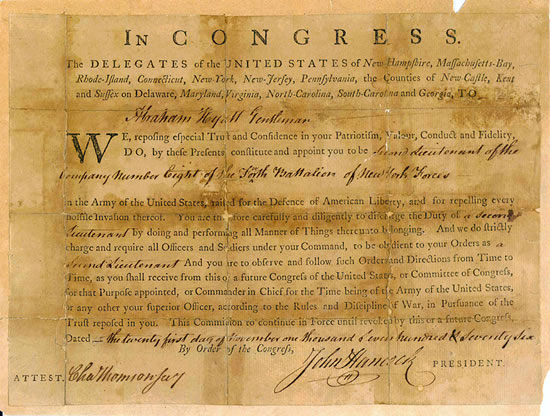 IN CONGRESS.
The DELEGATES of the UNITED STATES of New-Hampshire, Massachusetts-Bay,
Rhode-Island, Connecticut, New-York, New-Jersey, Pennsylvania, the Counties of New-Castle, Kent
and Sussex on Delaware, Maryland, Virginia, North-Carolina, South-Carolina and Georgia, TO
Abraham Hyatt Gentleman
WE, reposing especial Trust and Confidence in your Patriotism, Valour, Conduct and Fidelity,
DO, by these Presents constitute and appoint you to be Second Lieutenant of the
Company Number Eight of the Forth Battalion of New York Forces
in the Army of the United States, raised for the Defence of American Liberty, and for repelling every
hostile Invasion thereof. You are therefore carefully and diligently to discharge the Duty of a Second
Lieutenant by doing and performing all Manner of Things thereunto belonging. And we do strictly
charge and require all Officers and Soldiers under your Command, to be obedient to your Orders as a
Second Lieutenant And you are to observe and follow such Orders and Directions from Time to
Time, as you shall receive from this or a future Congress of the United States, or Committee of Congress,
for that Purpose appointed, or Commander in Chief for the Time being of the Army of the United States,
or any other your superior Officer, according to the Rules and Discipline of War, in Pursuance of the
Trust reposed in you. This Commission to continue in Force until revoked by this or a future Congress.
Dated the twenty first day of November one thousand Seven hundred & Seventy Six
By Order of the Congress,
John Hancock PRESIDENT.
ATTEST. Cha Thomson Secy